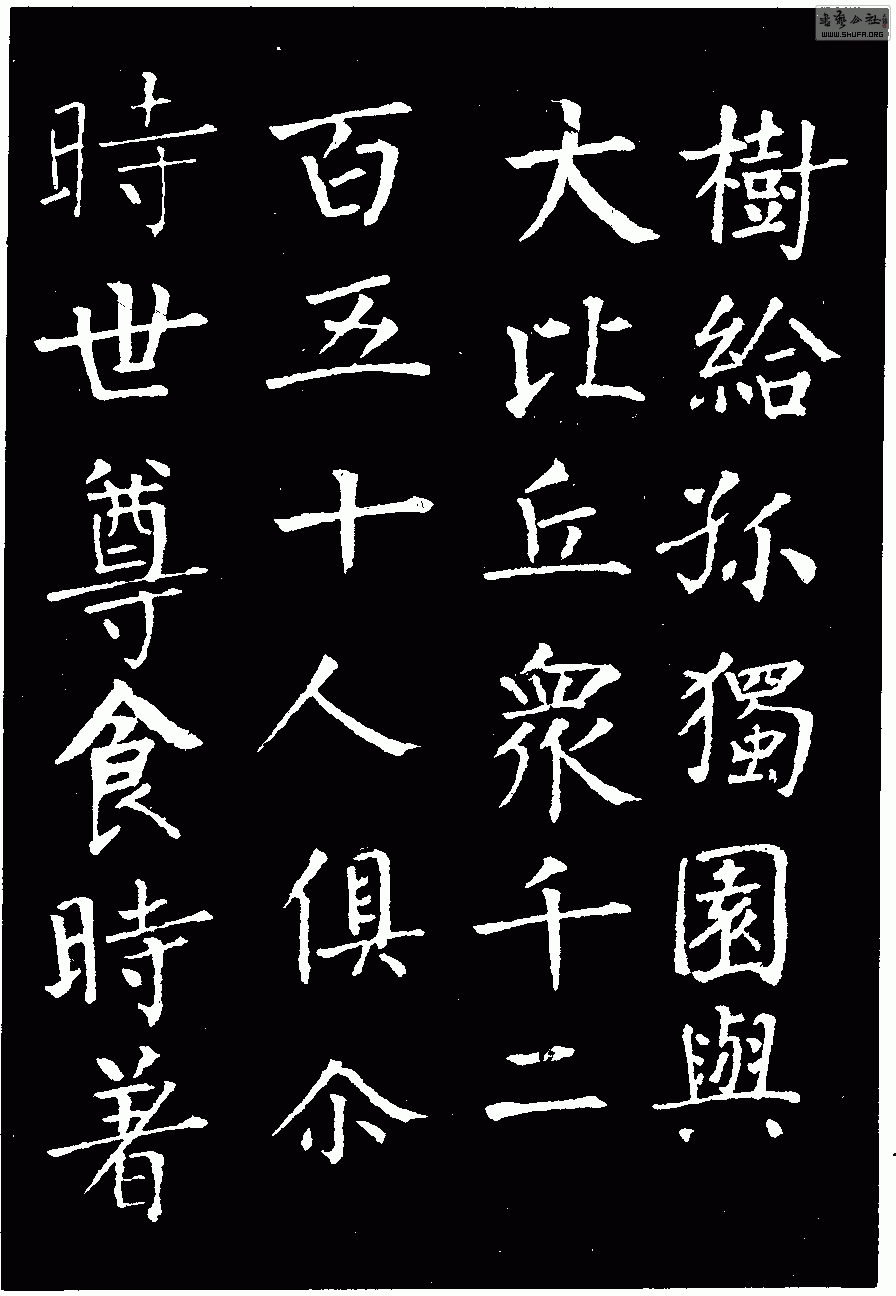 樹給孤獨園與
大比丘衆千二
百五十人俱尒
時世尊食時著
WWW.SHUFA.ORG